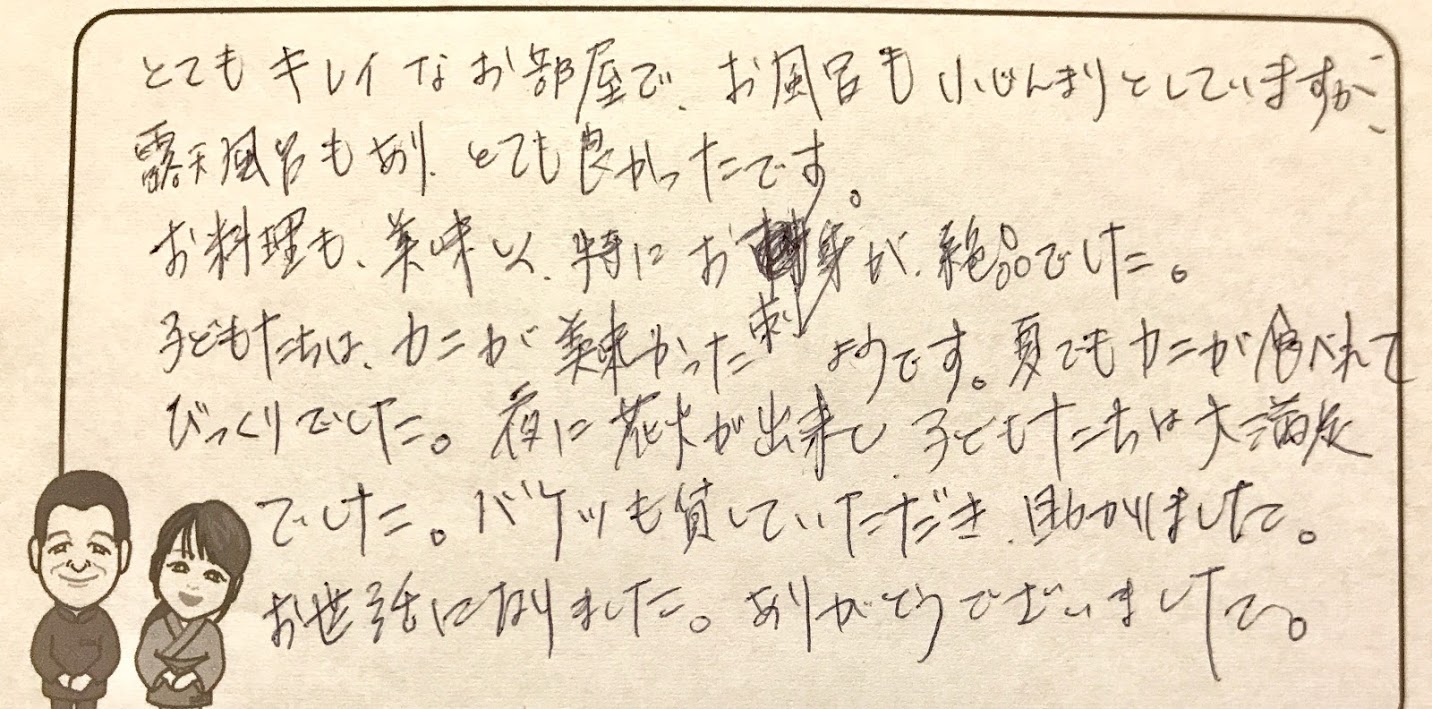 とてもキレイなお部屋で、お風呂も小じんまりとしていますが、
露天風呂もあり、とても良かったです。
お料理も、美味しく、特にお刺身が、絶品でした。
子どもたちは、カニが美味かったようです。夏でもカニが食べれて
びっくりでした。夜に花火が出来て、子どもたちは大満足
でした。バケツも貸していただき、助かりました。
お世話になりました。ありがとうございました。